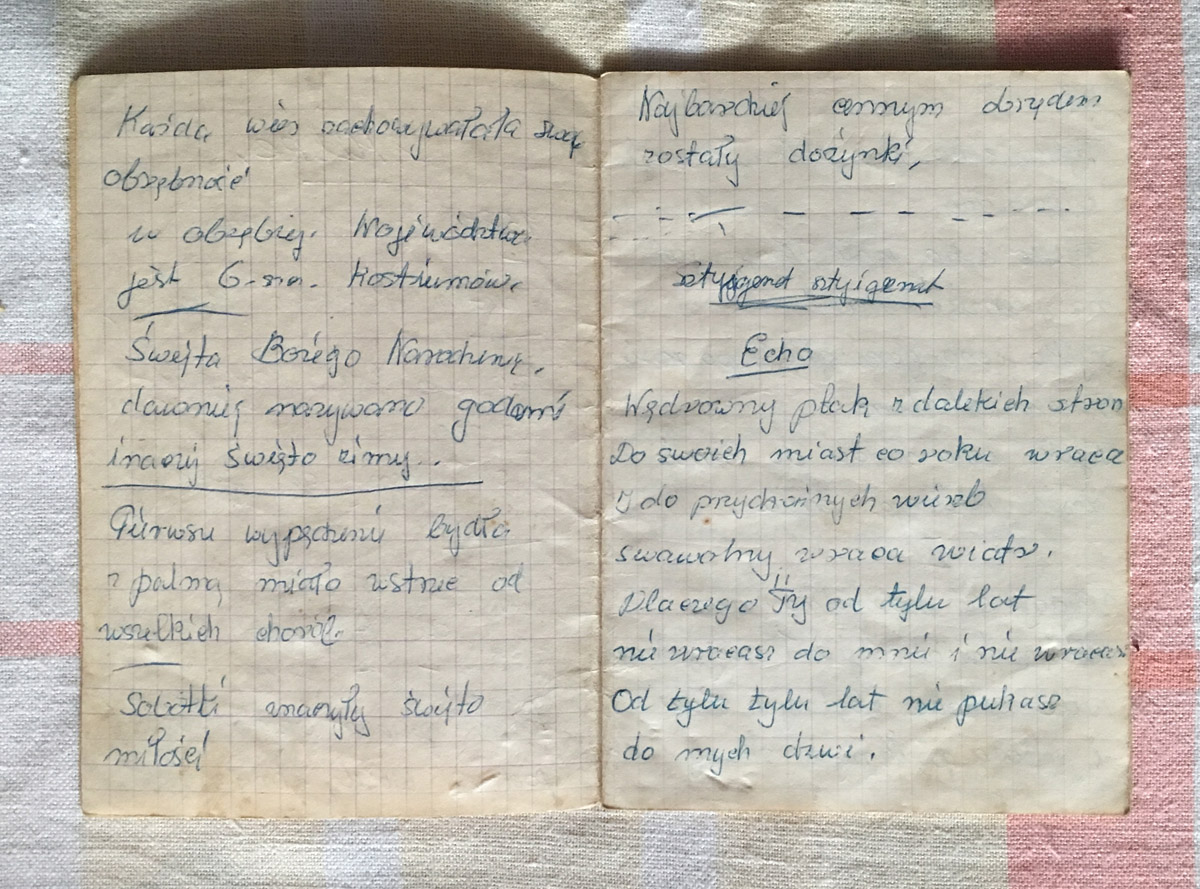 Każda wieś zachowywałała swą
obrzębność
w obrębiej. Województwa
jest 6-na. Kostiumów.
Śwejta Bożego Narodzinę,
dawanięj nazywano godami
inaczij święto zimy..
Pierwsze wypędzenie bydła
z palmą miało ustrzec od
wszelkich chorób.
Sobótki znaczyły święto
miłości
Najbardziej cennym obrzędem
zostały dożynki,
Echo
Wędrowny ptak z dalekich stron
Do swoich miast co roku wraca
I do przydrożnych wierzb
swawolny wraca wiatr.
Dlaczego Ty od tylu lat
nie wracasz do mnie i nie wracasz
Od tylu tylu lat nie pukasz
do mych drzwi.